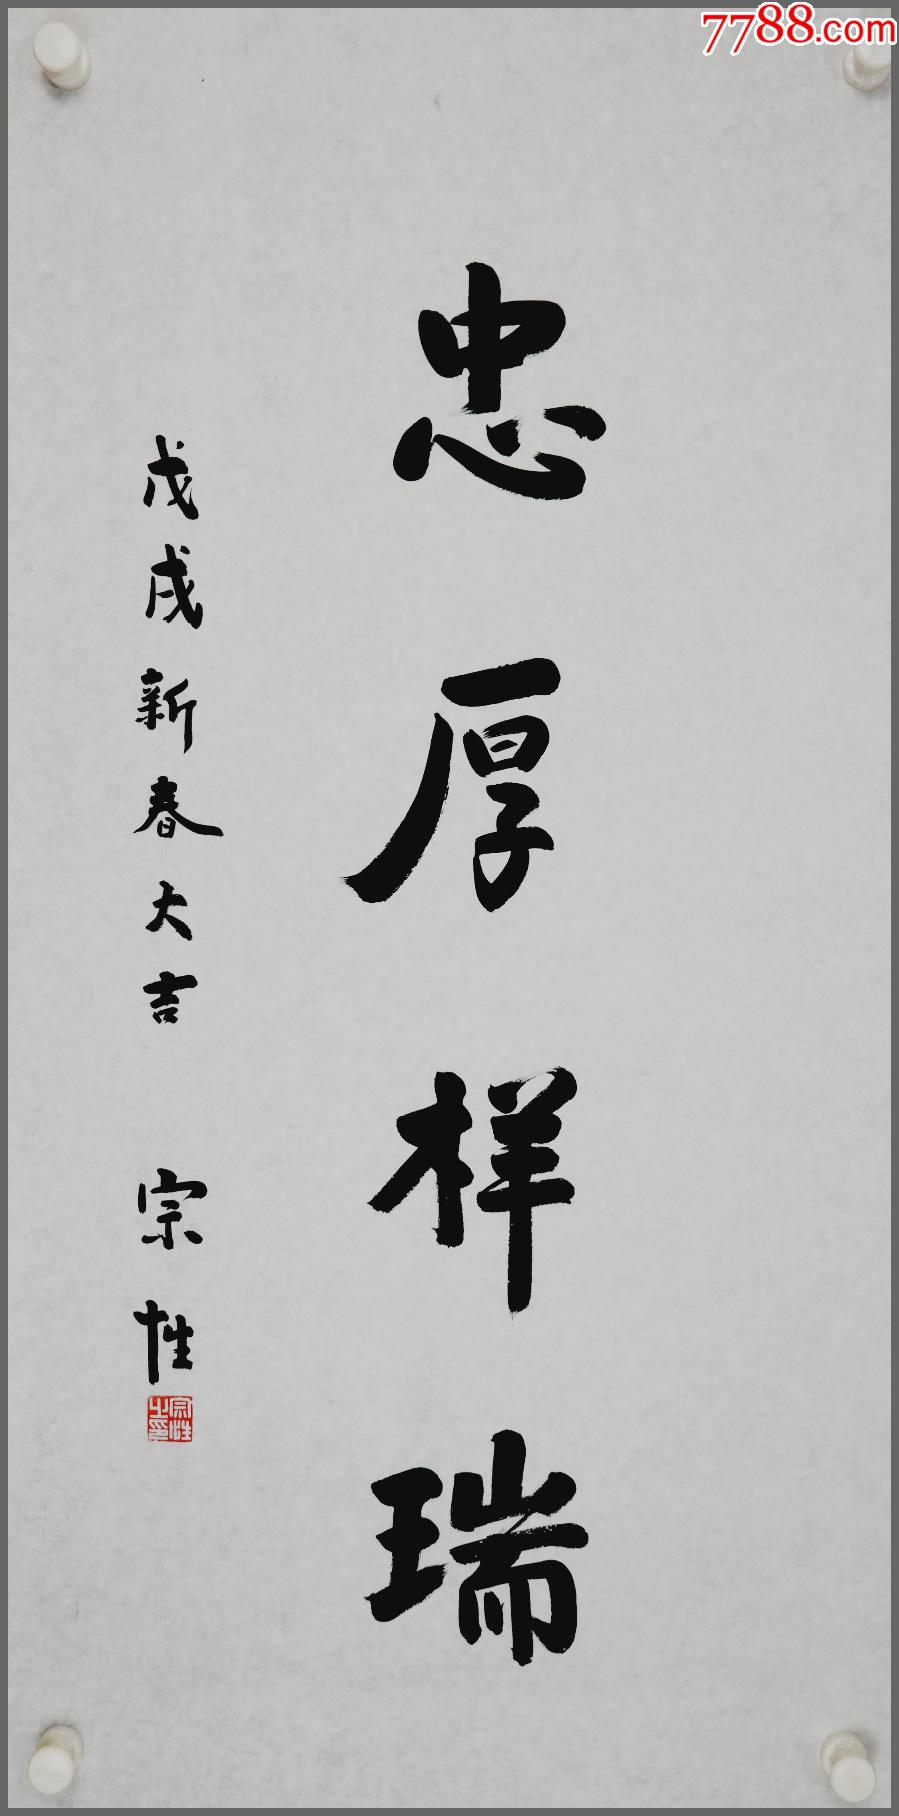 7788.com
忠厚样瑞
戊戌新春大吉 宗性
宗性之印